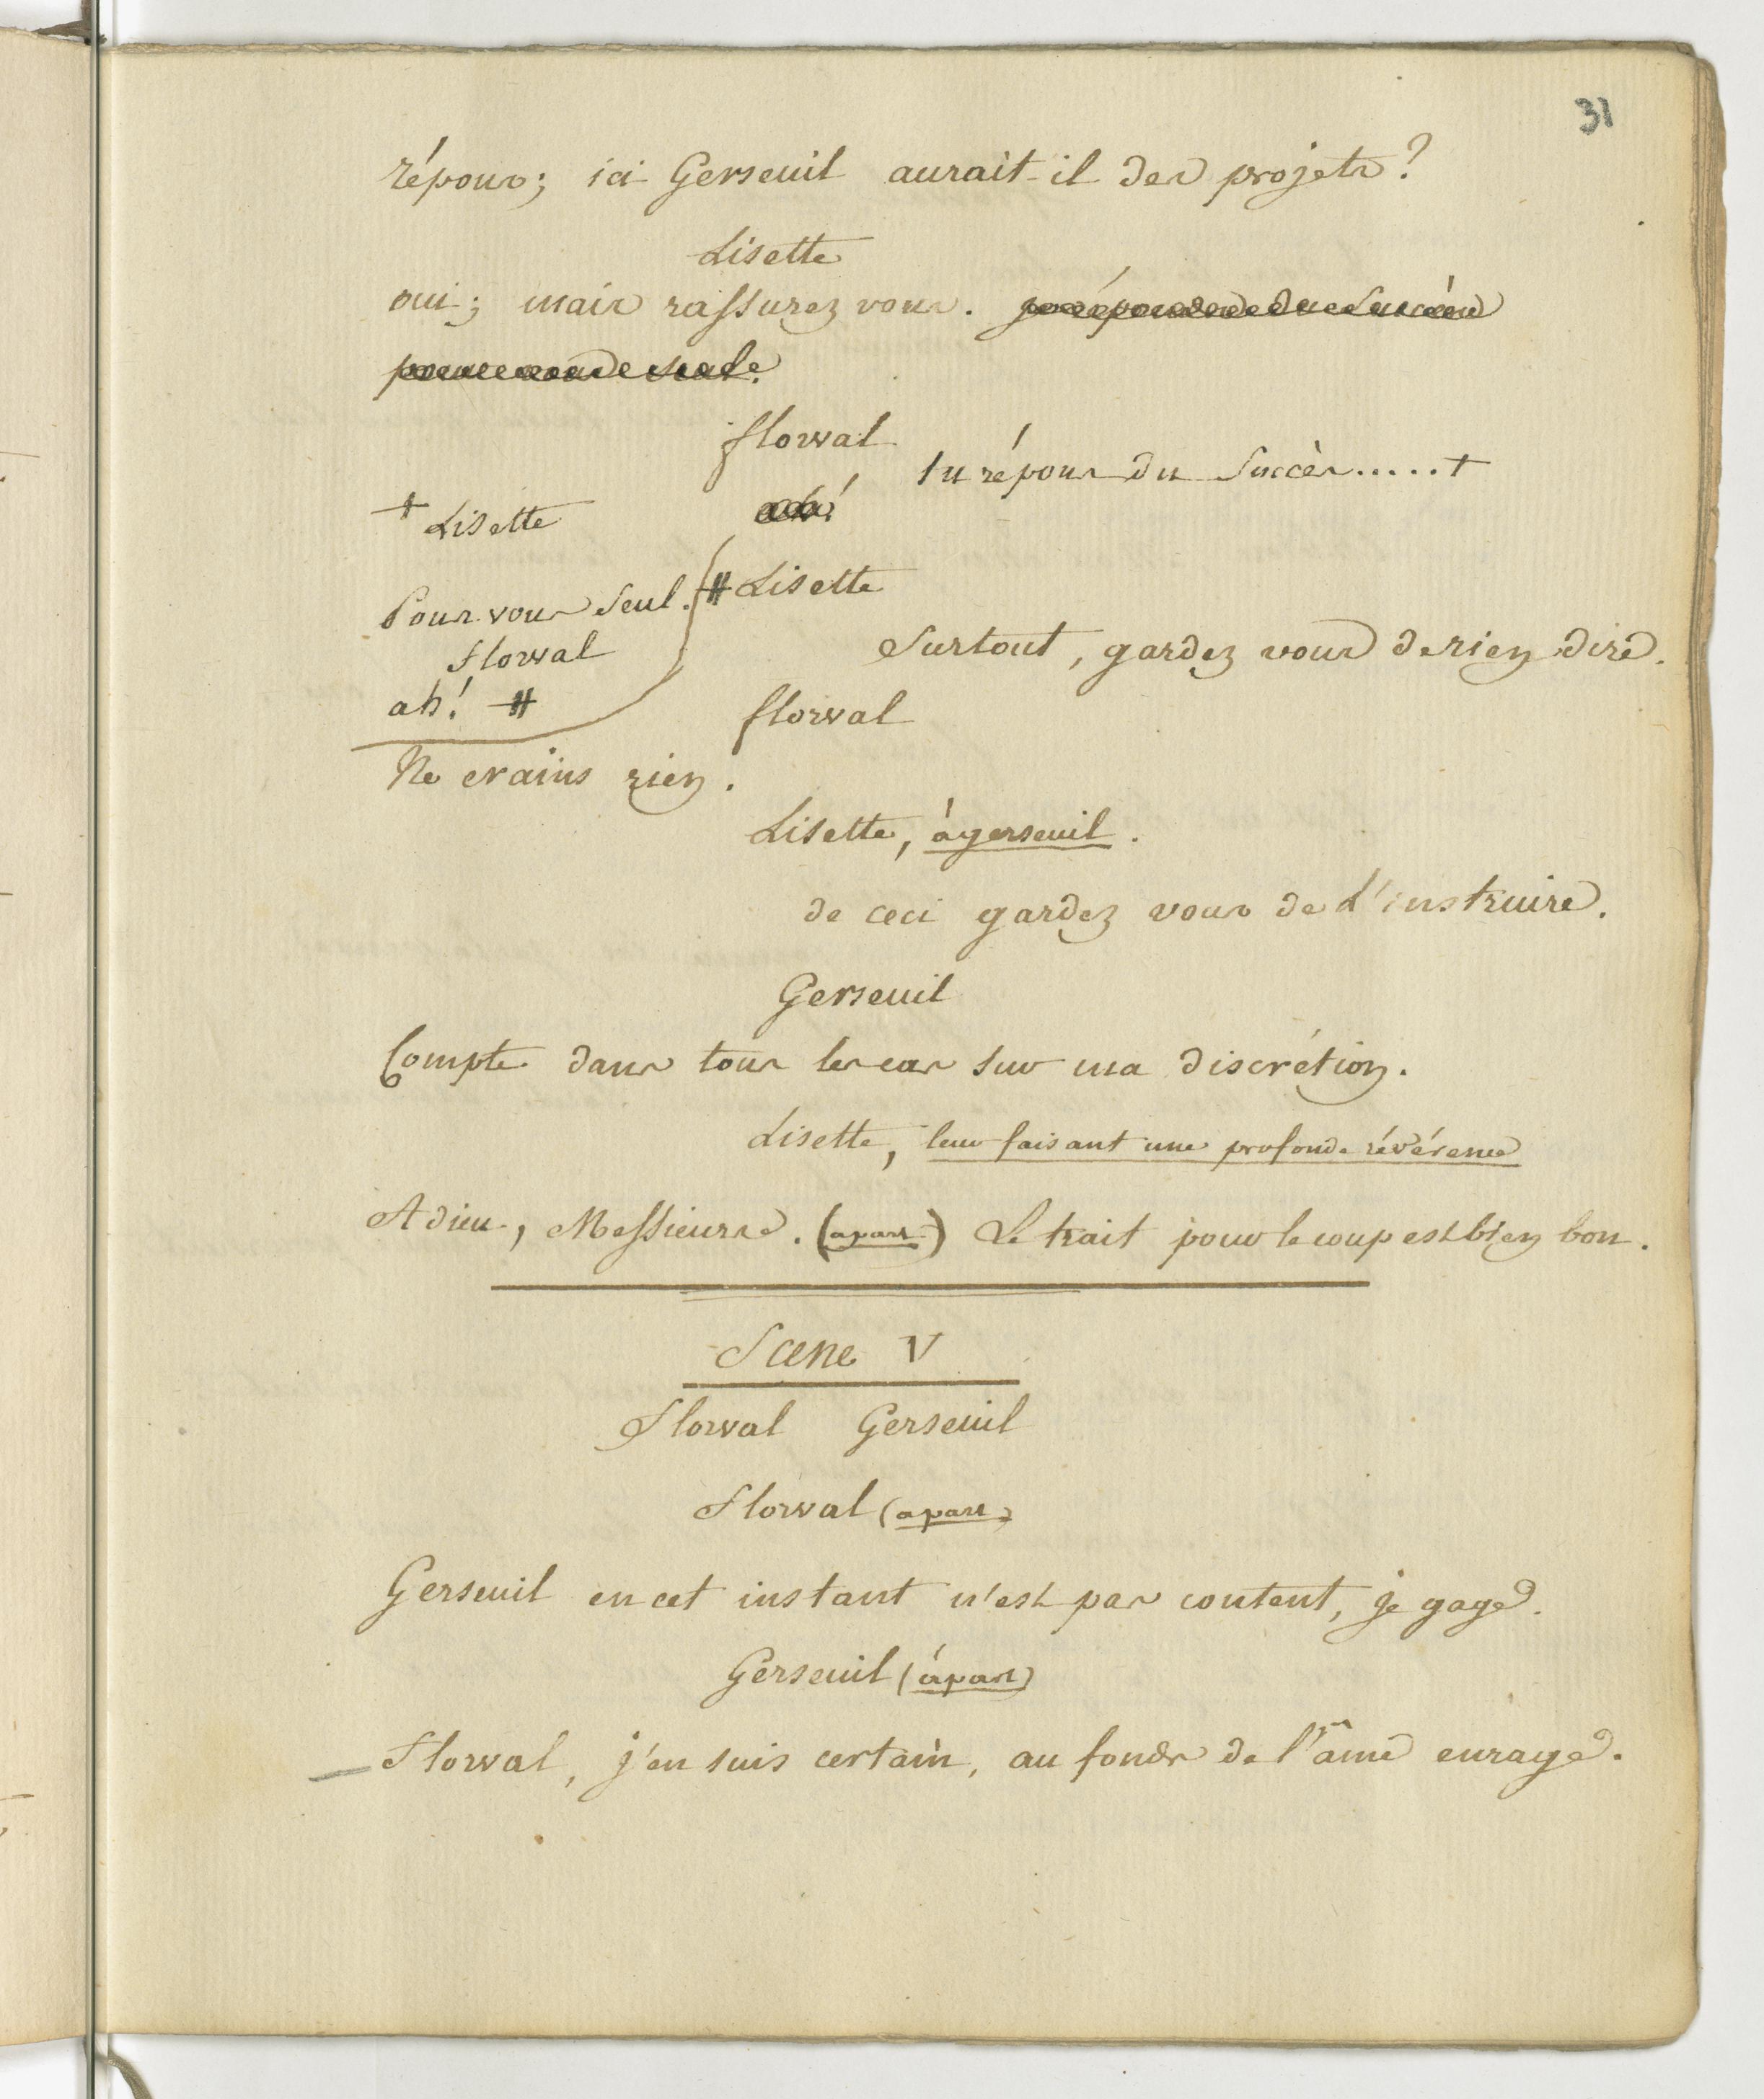 31
répons; ici Gerseuil aurait-il des projets?
Lisette
oui; mais rassurez vous.
florval
tu répons du succès.....+
+ Lisette
Pour vous seul.
florval
ah! #
# Lisette
Surtout, gardez vous de rien dire.
florval
Ne crains rien.
Lisette, à gerseuil.
de ceci gardez vous de L'instruire.
Gerseuil
Compte dans tous les cas sur ma discrétion.
Lisette, leur faisant une profonde révérence
Adieu, Messieurs. (apart) Le trait pour le coup est bien bon.
Scene V
Florval Gerseuil
Florval (apart)
Gerseuil en cet instant n'est pas content, je gage.
Gerseuil (àpart)
Florval, j'en suis certain, au fonds de l'âme enrage.